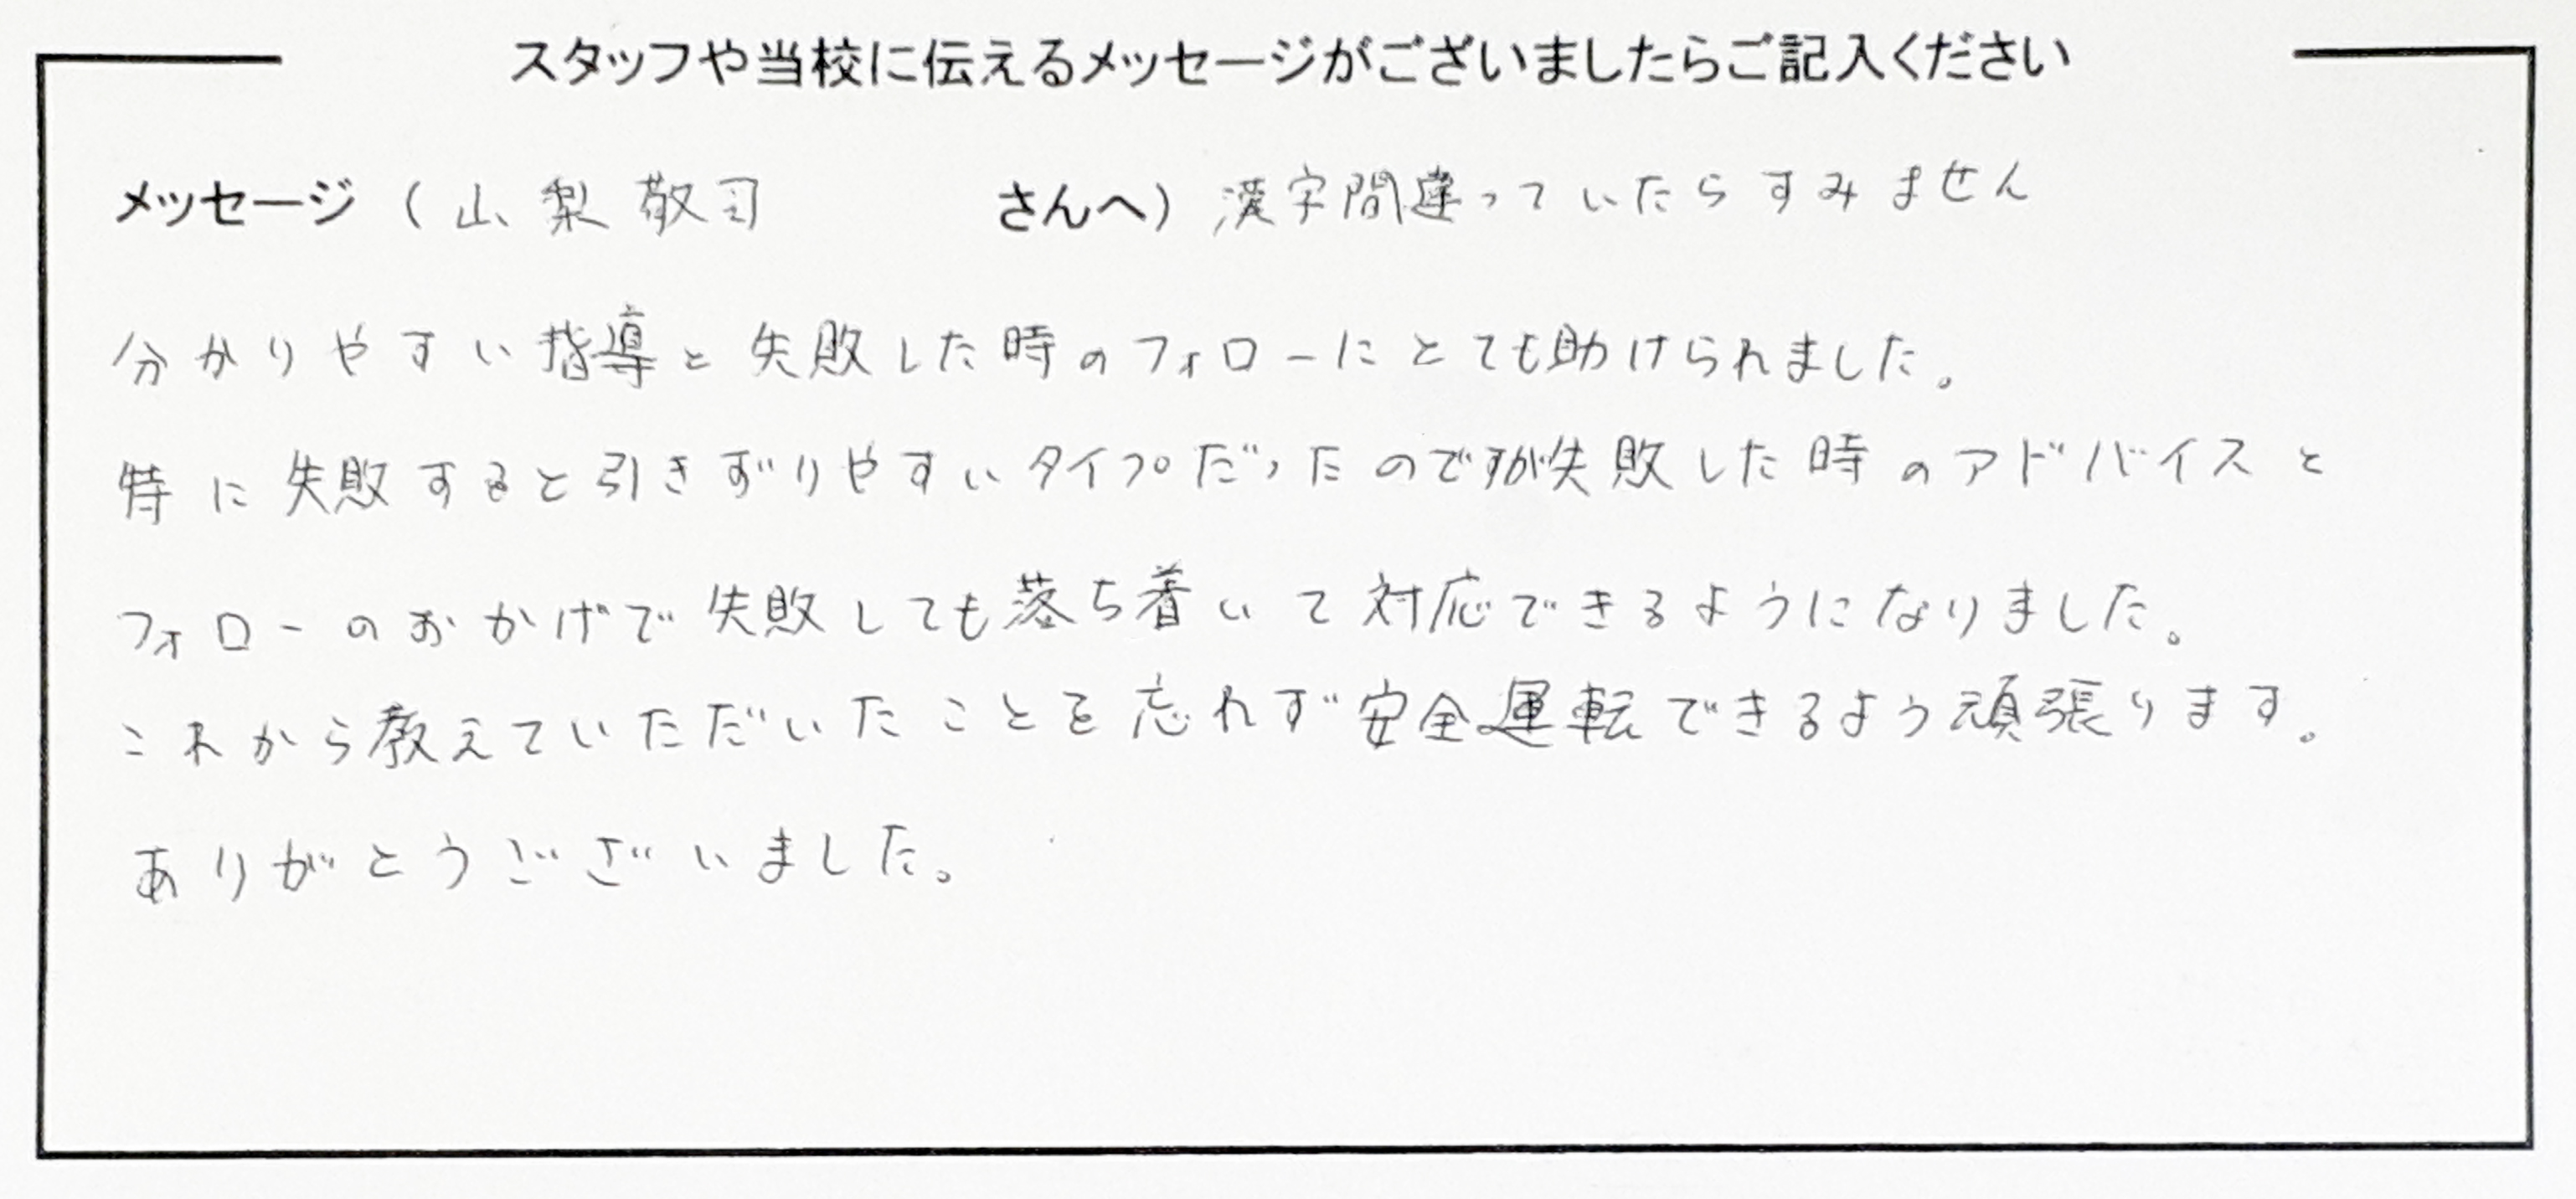 スタッフや当校に伝えるメッセージがございましたらご記入ください
メッセージ（山梨敬司　さんへ）漢字間違っていたらすみません
分かりやすい指導と失敗した時のフォローにとても助けられました。
特に失敗すると引きずりやすいタイプだったのですが失敗した時のアドバイスと
フォローのおかげで失敗しても落ち着いて対応できるようになりました。
これから教えていただいたことを忘れず安全運転できるよう頑張ります。
ありがとうございました。